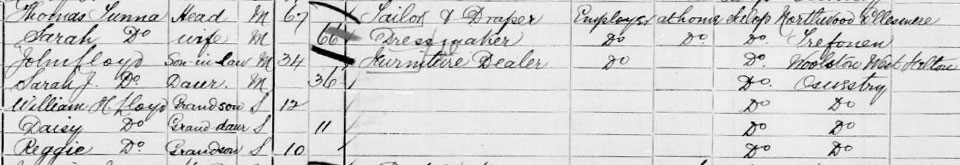 Thomas Sunna Head M 67 Tailor & Draper Employer at home Salop Northwood Ellesmere
Sarah Do wife M 66 Dressmaker Do Do Do Trefonen
John floyd Son-in-law M 34 Furniture Dealer Do Do Woolston West Felton
Sarah J. Do Daur. M 36 Do Oswestry
William H floyd Grandson S 12 Do Do
Daisy Do Grand daur S 11 Do Do
Reggie Do Grandson S 10 Do Do